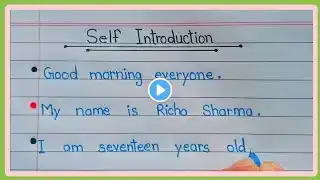 Self Introduction
Good morning everyone.
My name is Richa Sharma.
I am seventeen years old.